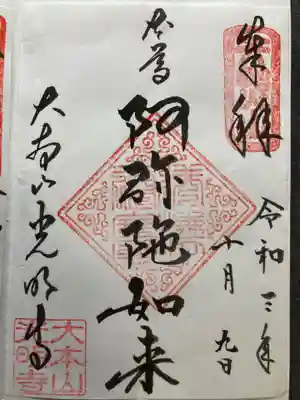 奉拝
令和三年
十月九日
本尊
阿弥陀如来
大本山光明寺
大本山
光明寺